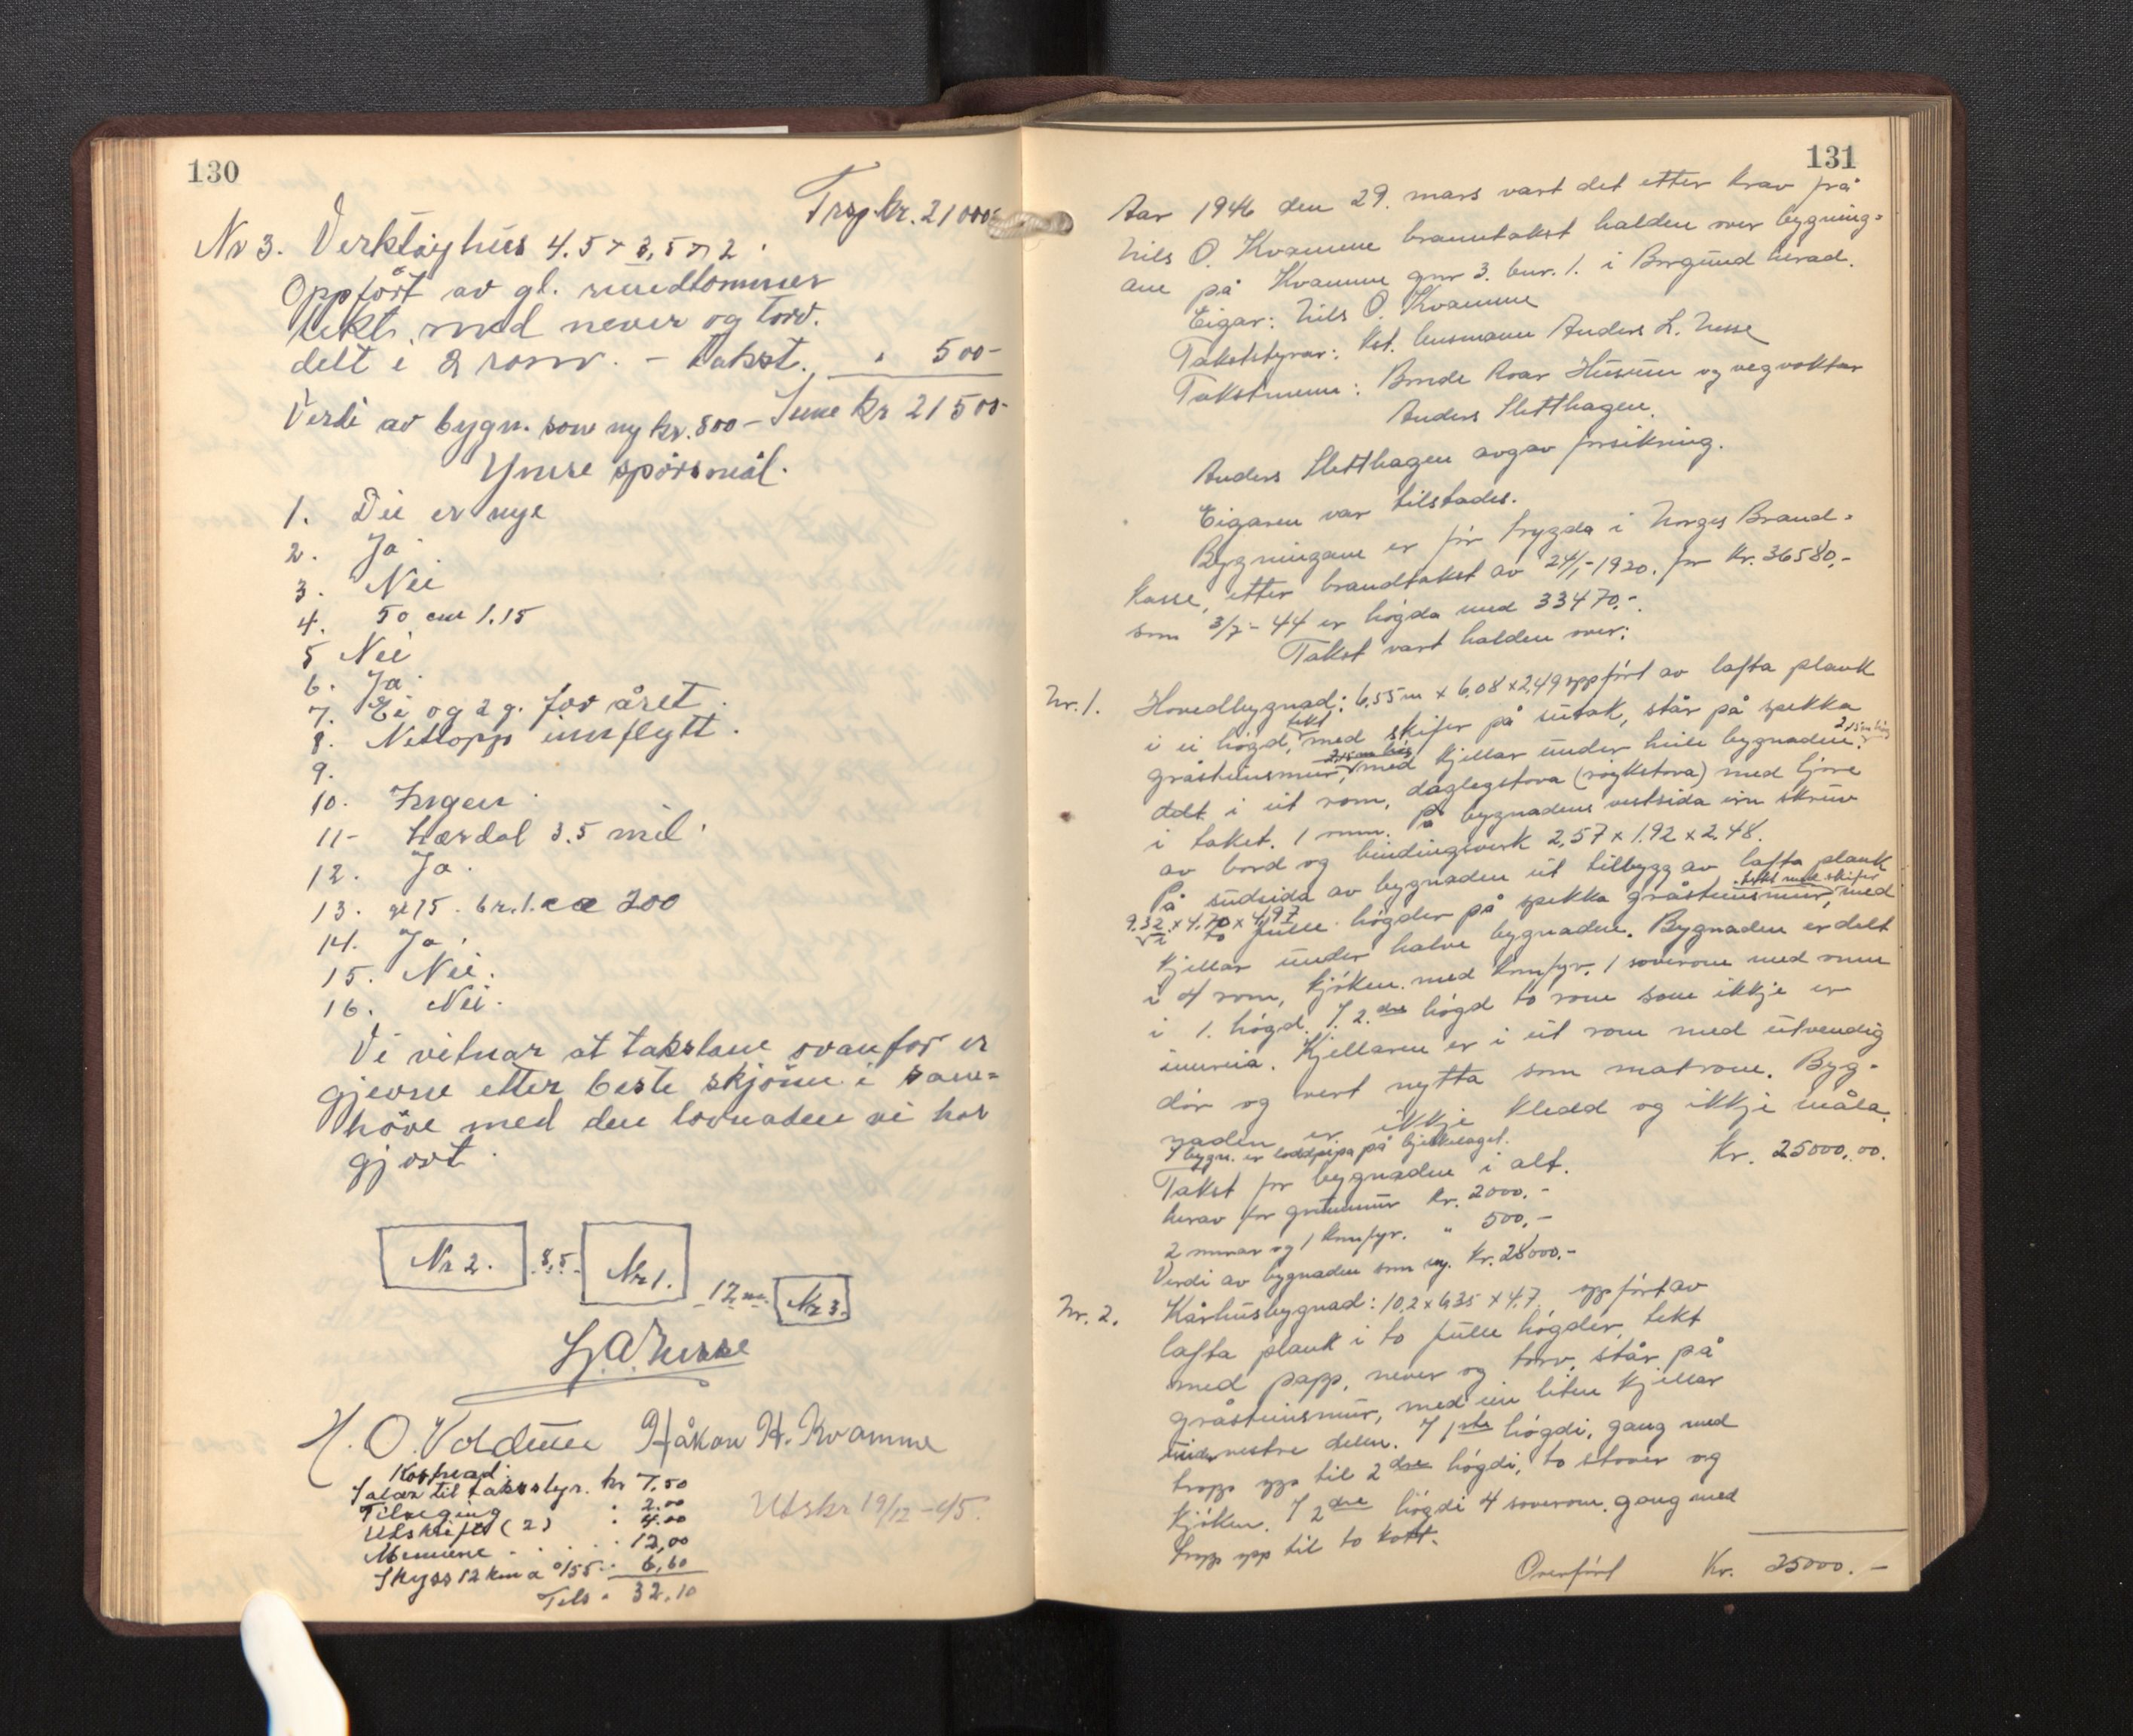 130
Trsp kr. 21000-
Nr 3. Verktöyhus 4.5 x 3,5 x 2.
Oppfört av gl. rundtommer
tekt med never og torv.
delt i 2 rom. - Takst. " 500-
Verdi av bygn. som ny kr. 800 - Sum kr 21500-
Ymse spörsmål.
1. Dei er nye
2. Ja
3. Nei
4. 50 cm 1.15
5 Nei
6. Ja.
7. Ei og 2 g. for året.
8. Nettopp innflytt.
9.
10. Ingen.
11- Lærdal 3.5 mil.
12. Ja.
13. g 15. br. 1. ca 200
14. Ja.
15. Nei.
16. Nei.
Vi vitnar at takstane ovanfor er
gjevne etter beste skjönn i sam=
höve med den lovnaden vi har
gjort.
Nr 2. 8,5 Nr 1. 12 m. Nr 3.
L. A. Nesse
H. O. Voldum Håkon H. Kvamme
Kostnad:
Salær til takststyr. kr 7,50
Tilseging " 2.00
Utskrift (2) " 4.00
Mennene " 12,00
Skyss 12 km a 0/55 " 6,60
Tils. 32,10
Utskr 19/12-45.
131
Aar 1946 den 29. mars vart det etter krav frå
Nils O. Kvamme branntakst halden over bygning=
ane på Kvamme gnr 3. bnr. 1. i Borgund herad.
Eigar: Nils O. Kvamme
Takststyrar: Kst. lensmann Anders L. Nesse
Takstmenn: Bonde Roar Husum og vegvoktar
Anders Sletthagen.
Anders Sletthagen avgav forsikring.
Eigaren var tilstades.
Bygningane er för trygda i Norges Brand=
kasse, etter brandtakst av 24/1-1920. for kr. 36580,-
som 3/7-44 er högda med 33470,-.
Takst vart halden over:
Nr. 1. Hovedbygnad: 6,55 m x 6,08 x 2,49 oppfört av lafta plank
i ei högd, tekt med skifer på sutak, står på spekka
gråsteinsmur, med kjellar under heile bygnaden. 2,15 m höy
delt i eit rom, daglegstova (röykstova) med ljore
i taket. 1 omn. På bygnadens vestsida ein skruv
av bord og bindingsverk 2,57 x 1.92 x 2.48.
På sudsida av bygnaden eit tilbygg av lafta plank
9.32 x 4.70 x 4,97 to fulle högder på spekka gråsteinsmur, tekt med skifer med
kjellar under halve bygnaden. Bygnaden er delt
i 4 rom, kjöken med komfyr. 1 soverom med omn
i 1. högd. I 2. dre högd to rom som ikkje er
innreia. Kjellaren er i eit rom med utvendig
dör og vert nytta som matrom. Byg-
naden er ikkje kledd og ikkje måla.
I bygn. er loddpipa på bjelkelaget.
Takst for bygnaden i alt. Kr. 25000,00.
herav for grunnmur kr. 2000.-
2 omnar og 1 komfyr. " 500,-
Verdi av bygnaden som ny. kr. 28000.-
Nr. 2. Kårhusbygnad: 10,2 x 6,35 x 4.7, oppfört av
lafta plank i to fulle högder, tekt
med papp, never og torv, står på
gråsteinsmur, med ein liten kjellar
under vestre delen. I 1ste högdi, gang med
tropp opp til 2dre högdi, to stover og
kjöken. I 2dre högdi 4 soverom, gang med
tropp opp til to kott.
Overfört Kr. 25000.-